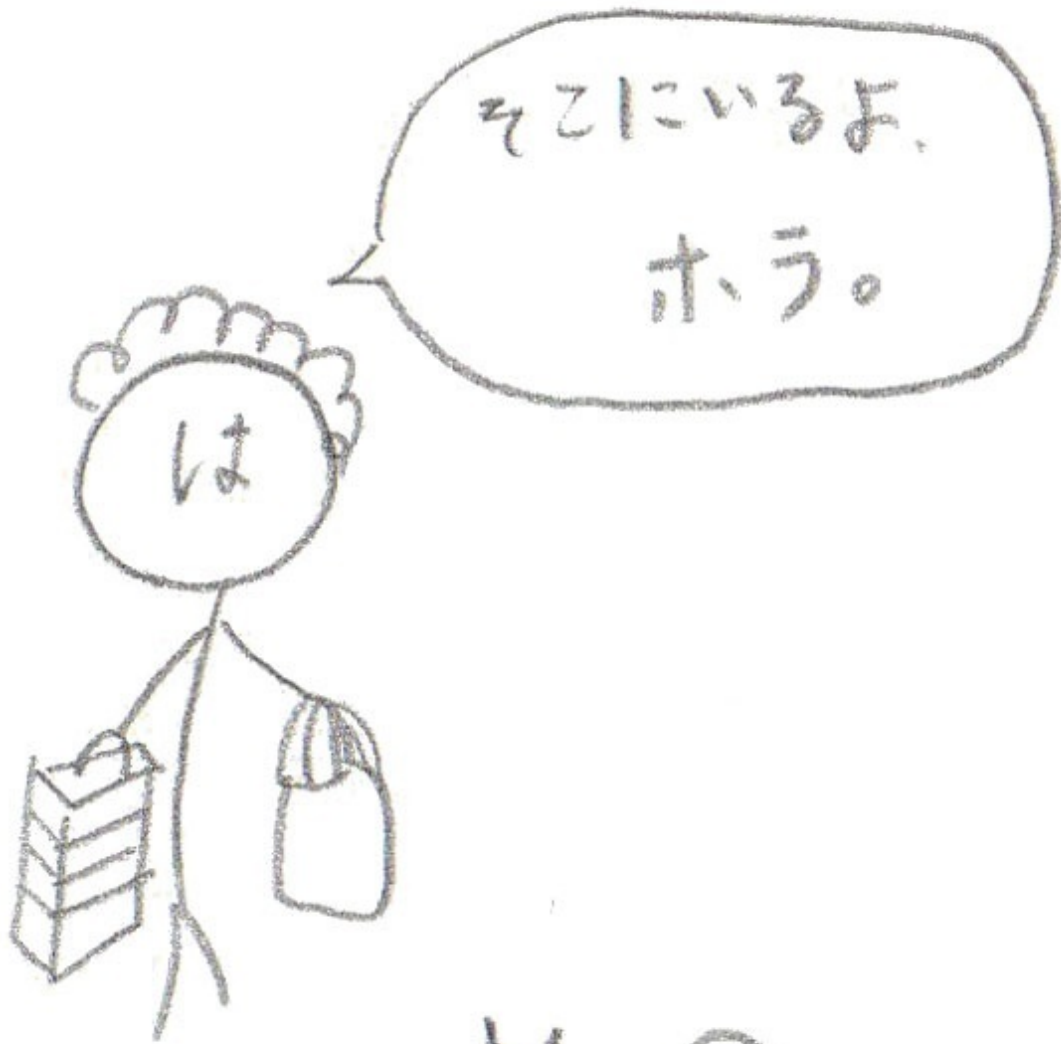 そこにいるよ、
ホラ。
は